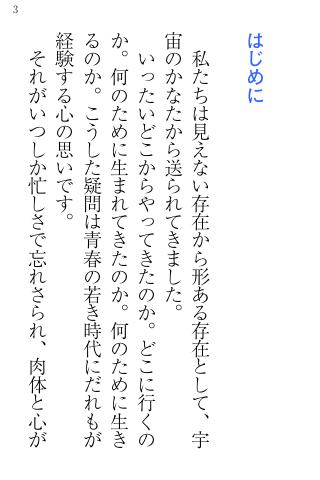 3
はじめに
私たちは見えない存在から形ある存在として、宇
宙のかなたから送られてきました。
いったいどこからやってきたのか。どこに行くの
か。何のために生まれてきたのか。何のために生き
るのか。こうした疑問は青春の若き時代にだれもが
経験する心の思いです。
それがいつしか忙しさで忘れさられ、肉体と心が